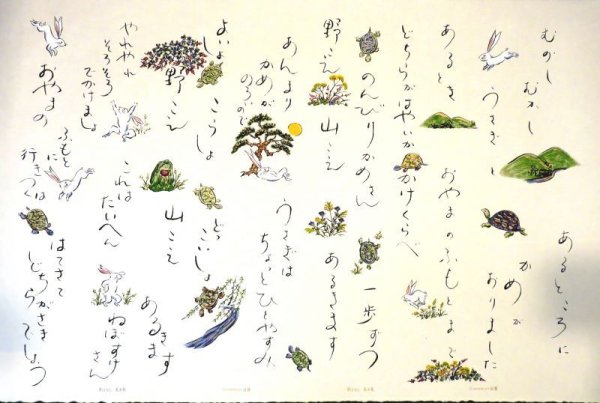 むかし むかし
あるところに
うさぎと
かめが
ありました
あるとき
おやまのふもとまで
どちらがはやいか かけくらべ
のんびりかめさん 一歩ずつ
野こえ 山こえ あるきます
あんまり
かめが
のろいので
うさぎは
ちょっとひとやすみ
よいしょ こらしょ どっこいしょ
野こえ 山こえ
あるきます
やれやれ
そろそろ
でかけましょ
これは
たいへん
ねぼすけさん
おやまの
ふもとに
はてさて
どちらがさきでしょう